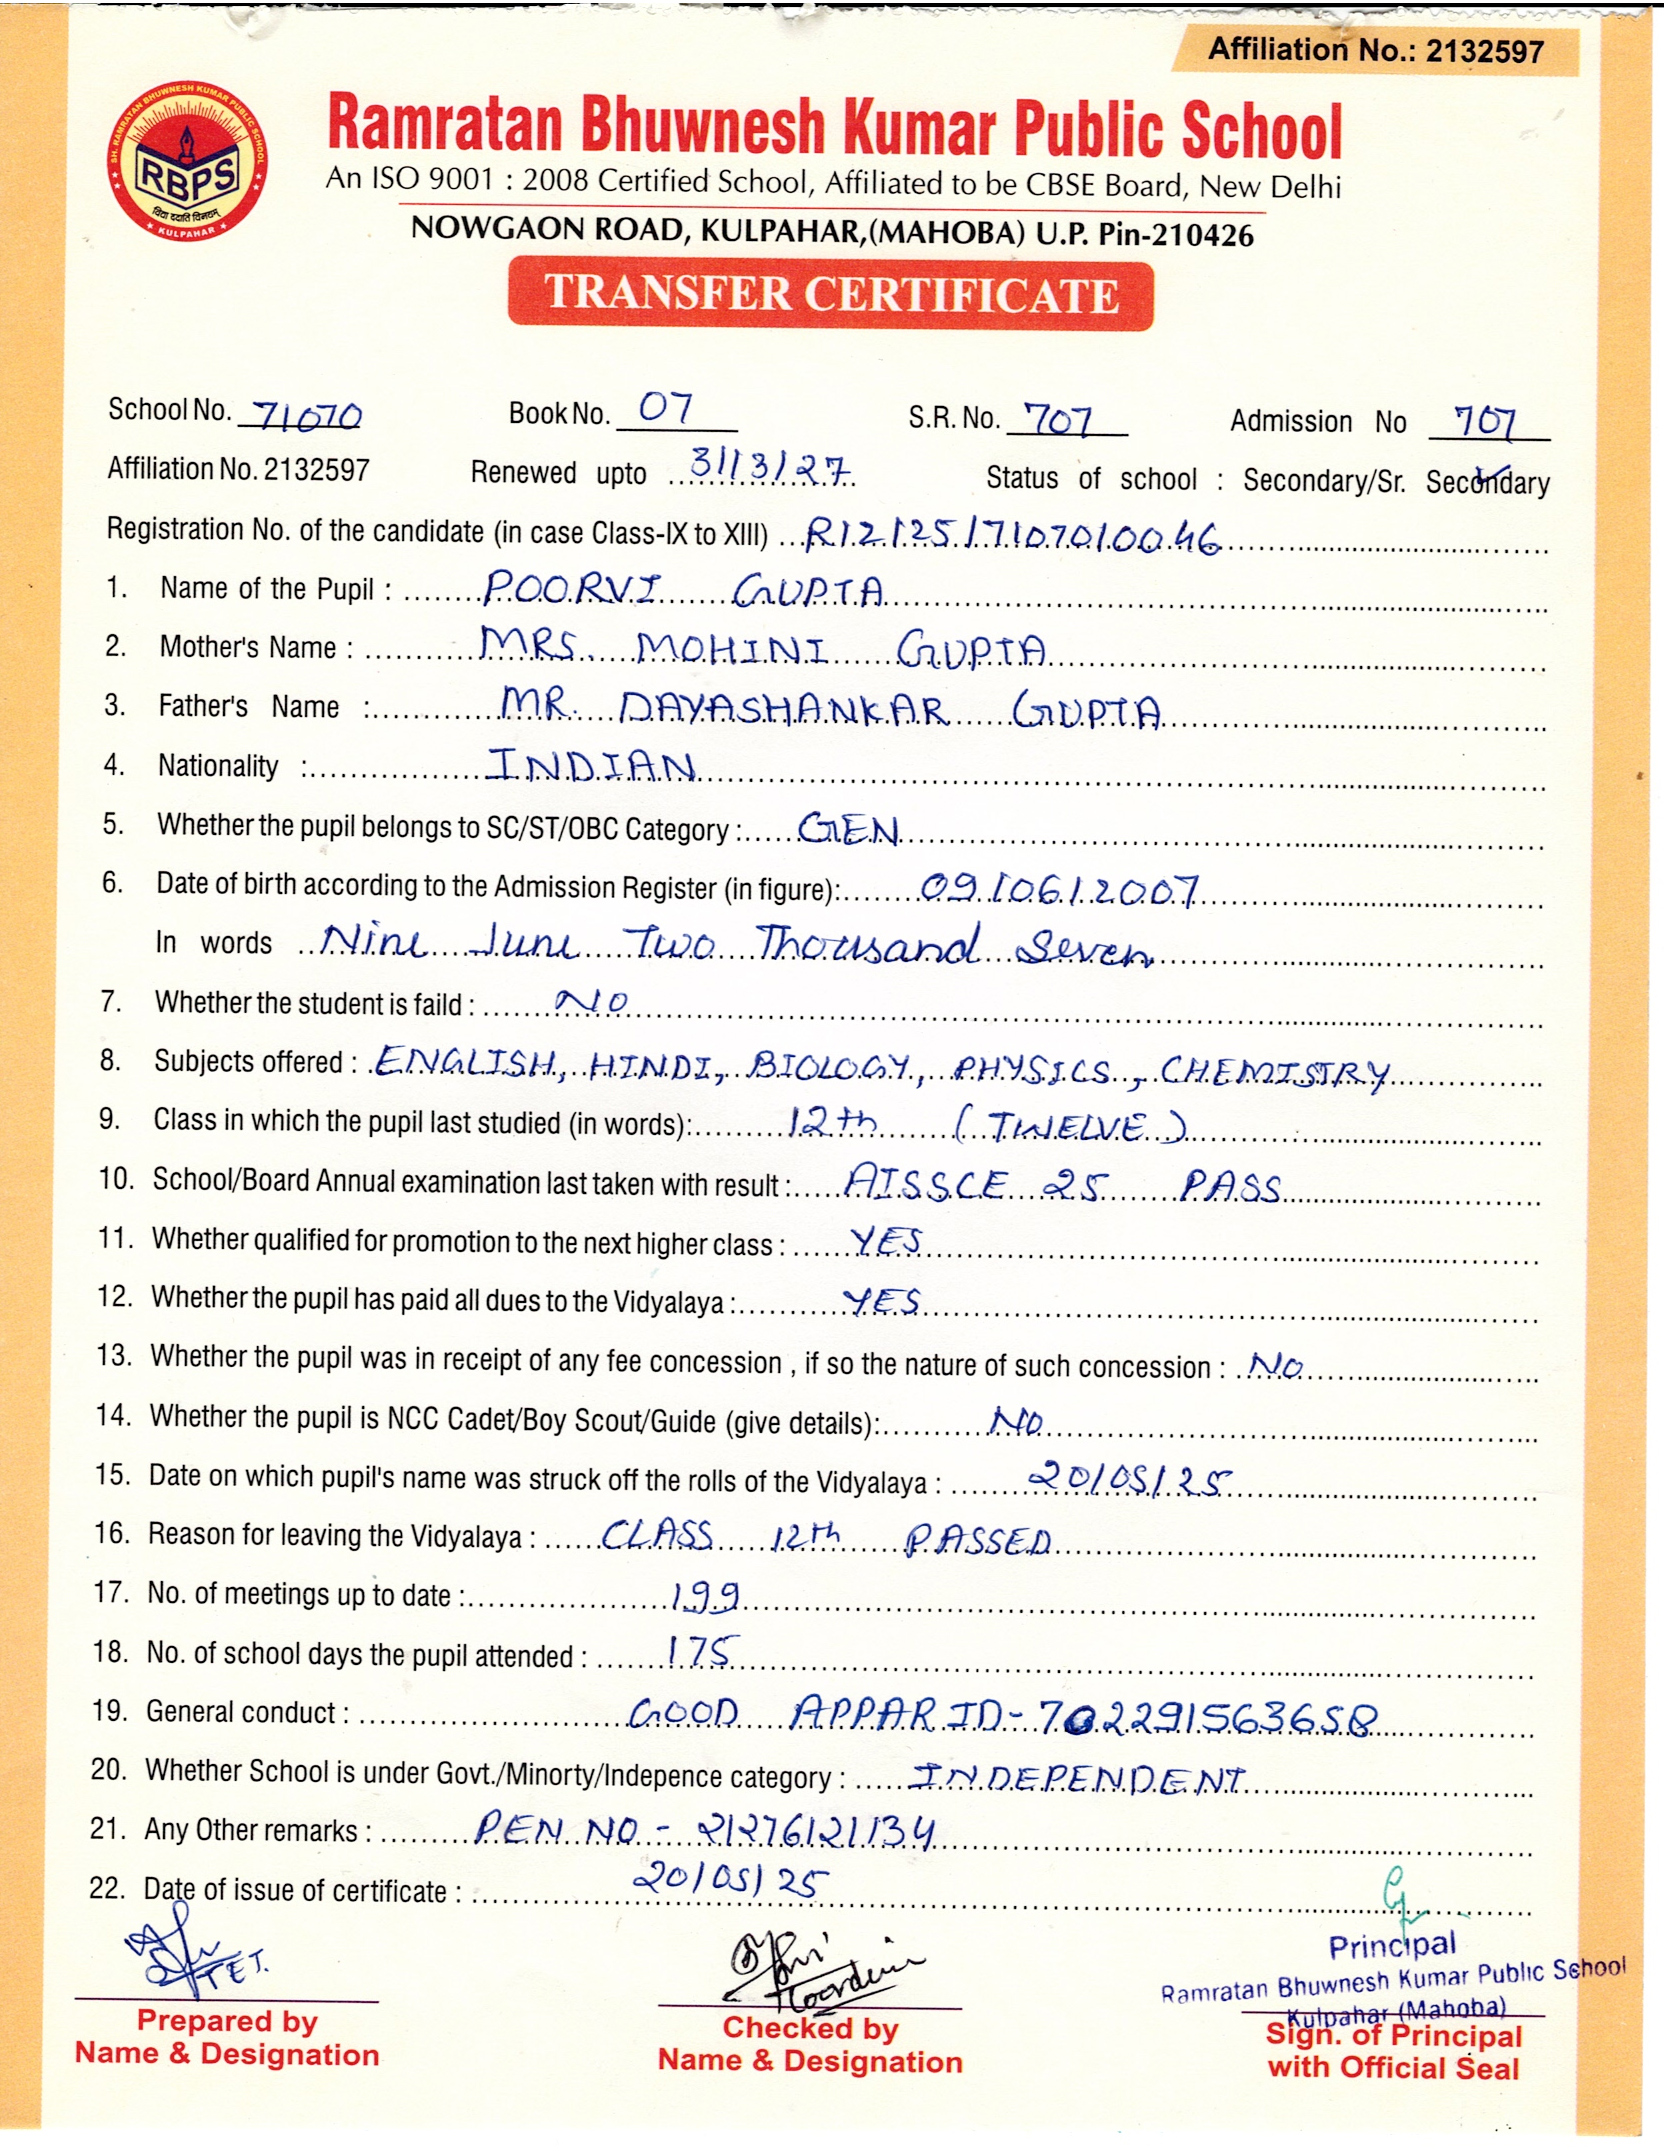 Affiliation No.: 2132597
SH. RAMRATAN BHUWNESH KUMAR PUBLIC SCHOOL
RBPS
विद्या ददाति विनयम्
KULPAHAR
Ramratan Bhuwnesh Kumar Public School
An ISO 9001 : 2008 Certified School, Affiliated to be CBSE Board, New Delhi
NOWGAON ROAD, KULPAHAR,(MAHOBA) U.P. Pin-210426
TRANSFER CERTIFICATE
School No. 71070 Book No. 07 S.R. No. 707 Admission No 707
Affiliation No. 2132597 Renewed upto 31/3/27 Status of school : Secondary/Sr. Secondary
Registration No. of the candidate (in case Class-IX to XIII) R12/25/71070/0046
1. Name of the Pupil : POORVI GUPTA
2. Mother's Name : MRS. MOHINI GUPTA
3. Father's Name : MR. DAYASHANKAR GUPTA
4. Nationality : INDIAN
5. Whether the pupil belongs to SC/ST/OBC Category : GEN
6. Date of birth according to the Admission Register (in figure): 09/06/2007
In words Nine June Two Thousand Seven
7. Whether the student is faild : NO
8. Subjects offered : ENGLISH, HINDI, BIOLOGY, PHYSICS, CHEMISTRY
9. Class in which the pupil last studied (in words): 12th (TWELVE)
10. School/Board Annual examination last taken with result : AISSCE 25 PASS
11. Whether qualified for promotion to the next higher class : YES
12. Whether the pupil has paid all dues to the Vidyalaya : YES
13. Whether the pupil was in receipt of any fee concession , if so the nature of such concession : NO
14. Whether the pupil is NCC Cadet/Boy Scout/Guide (give details): NO
15. Date on which pupil's name was struck off the rolls of the Vidyalaya : 20/05/25
16. Reason for leaving the Vidyalaya : CLASS 12th PASSED
17. No. of meetings up to date : 199
18. No. of school days the pupil attended : 175
19. General conduct : GOOD APPAR ID- 702291563658
20. Whether School is under Govt./Minorty/Indepence category : INDEPENDENT
21. Any Other remarks : PEN NO - 21276121134
22. Date of issue of certificate : 20/05/25
TET.
Principal
Ramratan Bhuwnesh Kumar Public School
Kulpahar (Mahoba)
Prepared by
Name & Designation
Checked by
Name & Designation
Sign. of Principal
with Official Seal